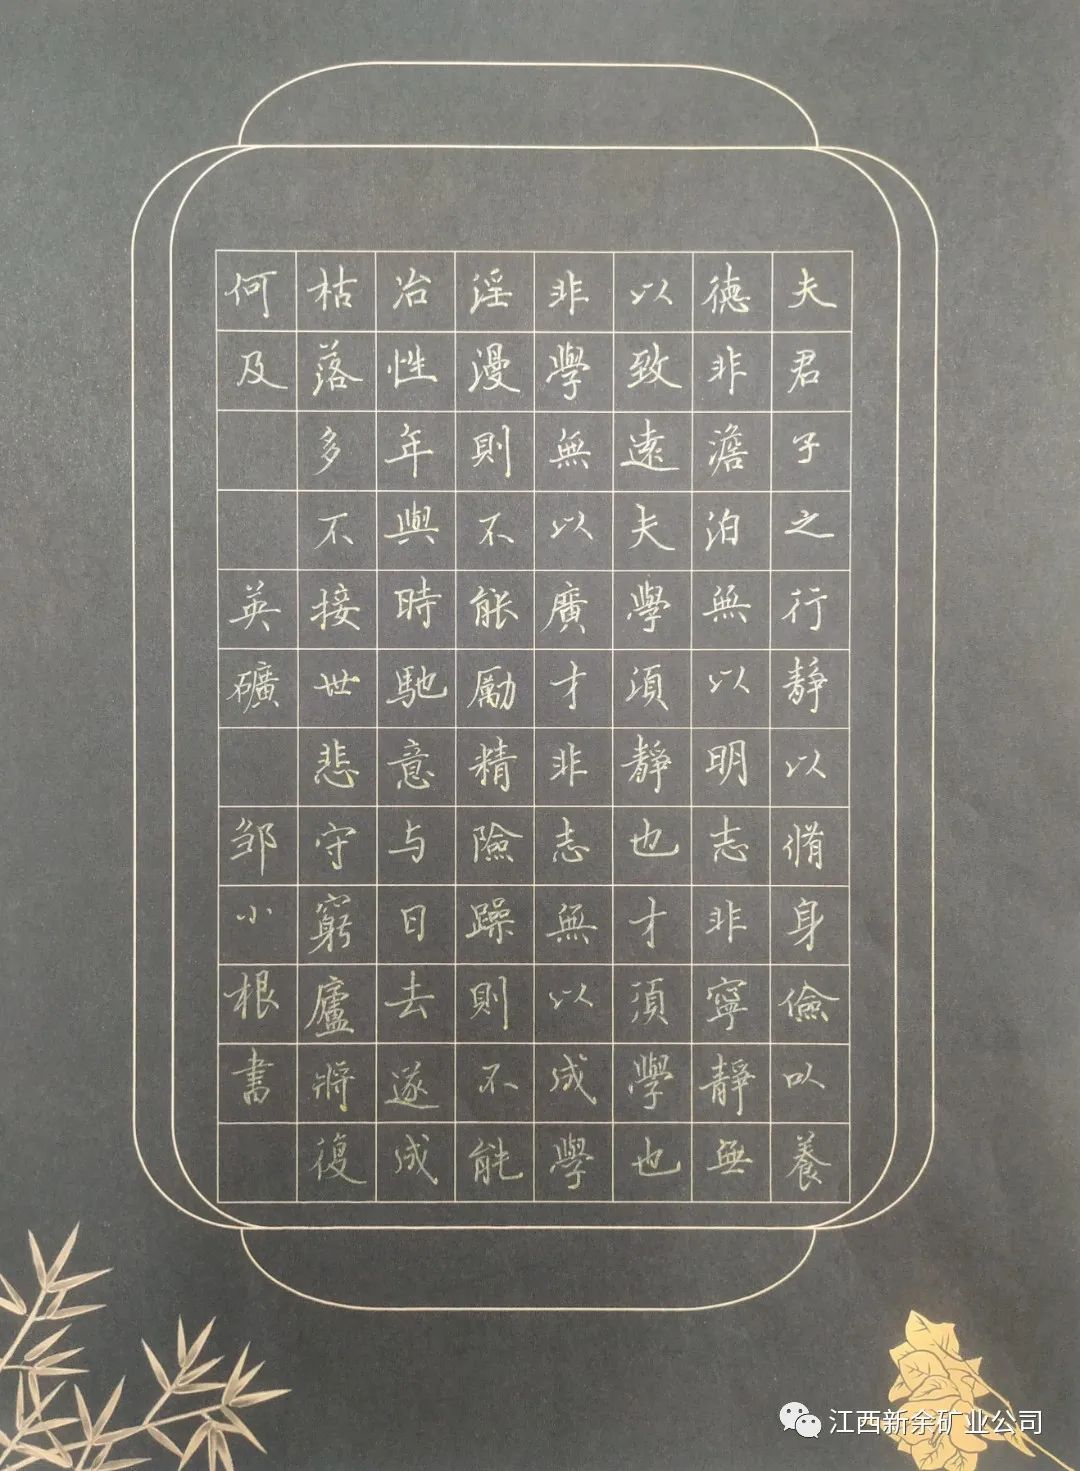 夫君子之行靜以脩身儉以養
德非澹泊無以明志非寧靜無
以致遠夫學須靜也才須學也
非學無以廣才非志無以成學
淫漫則不能勵精險躁則不能
冶性年與時馳意与日去遂成
枯落多不接世悲守窮廬將復
何及 英礦 邹小根書
江西新余矿业公司